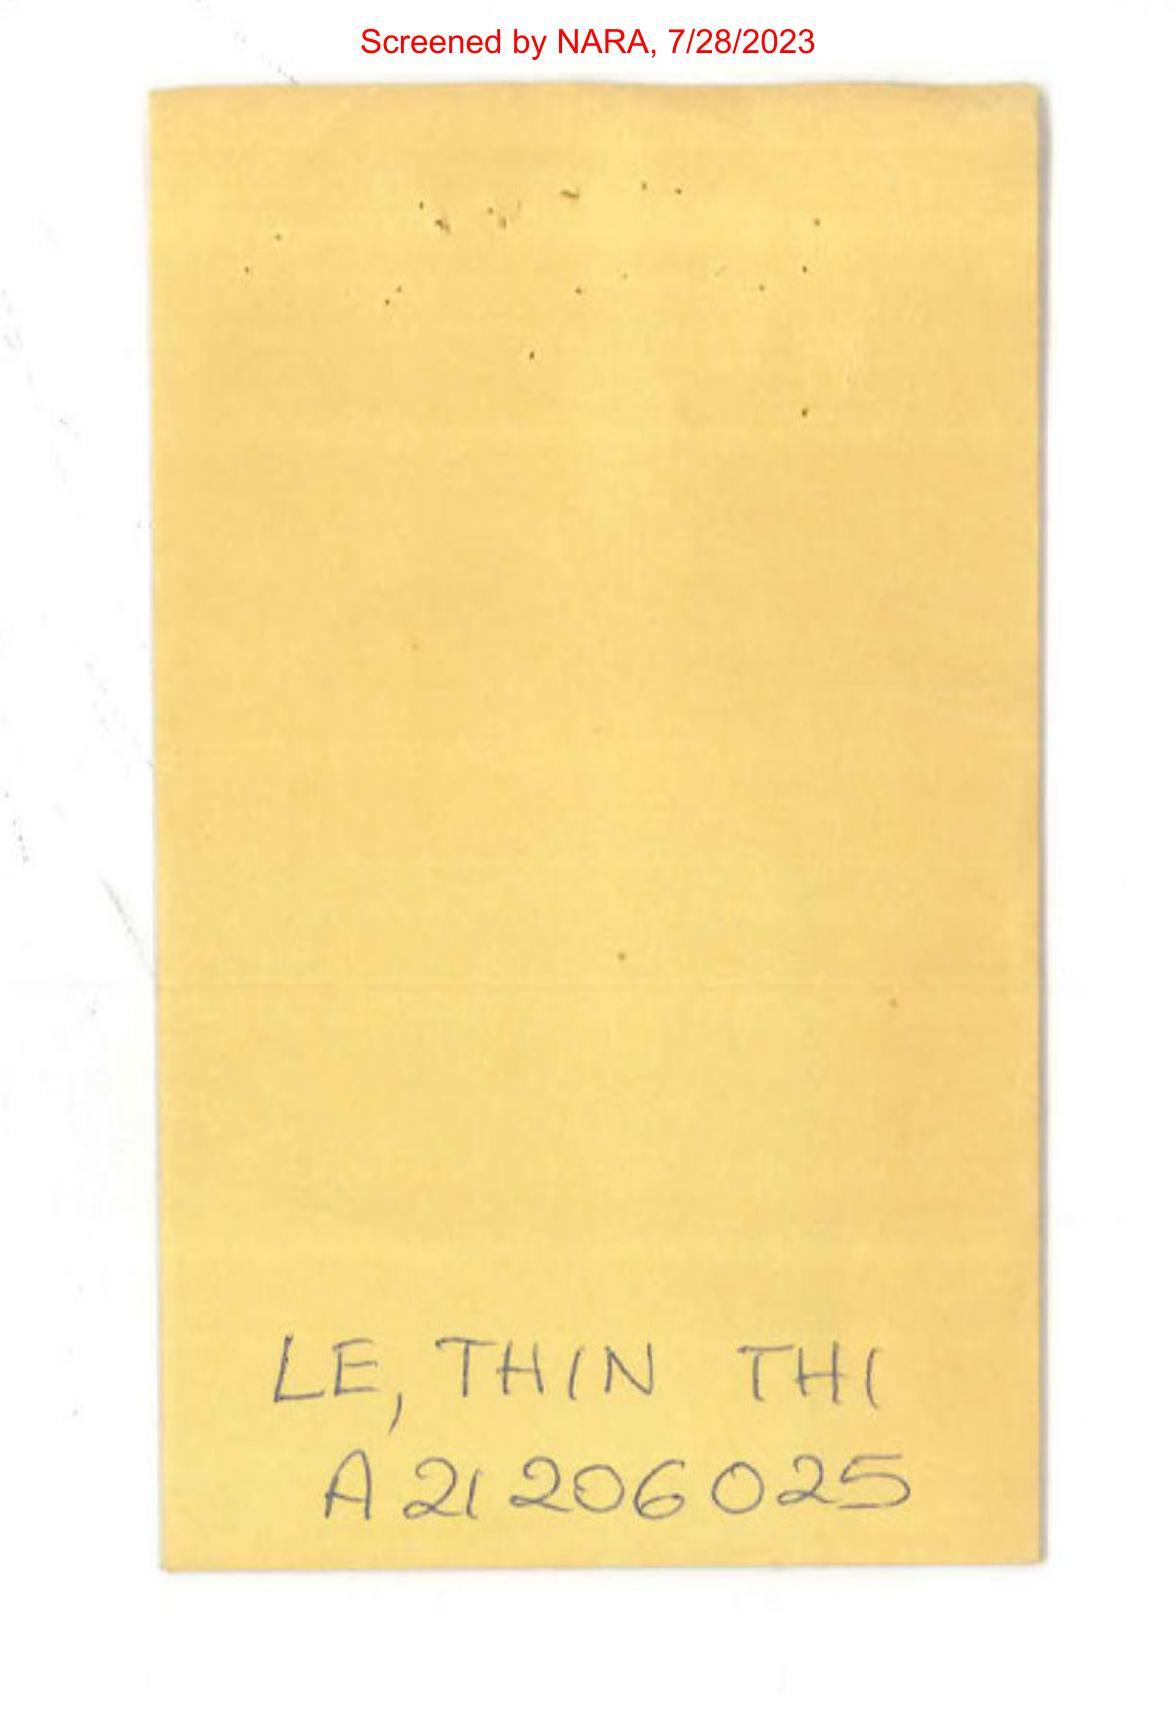 Screened by NARA, 7/28/2023
LE, THIN THI
A21 206 025